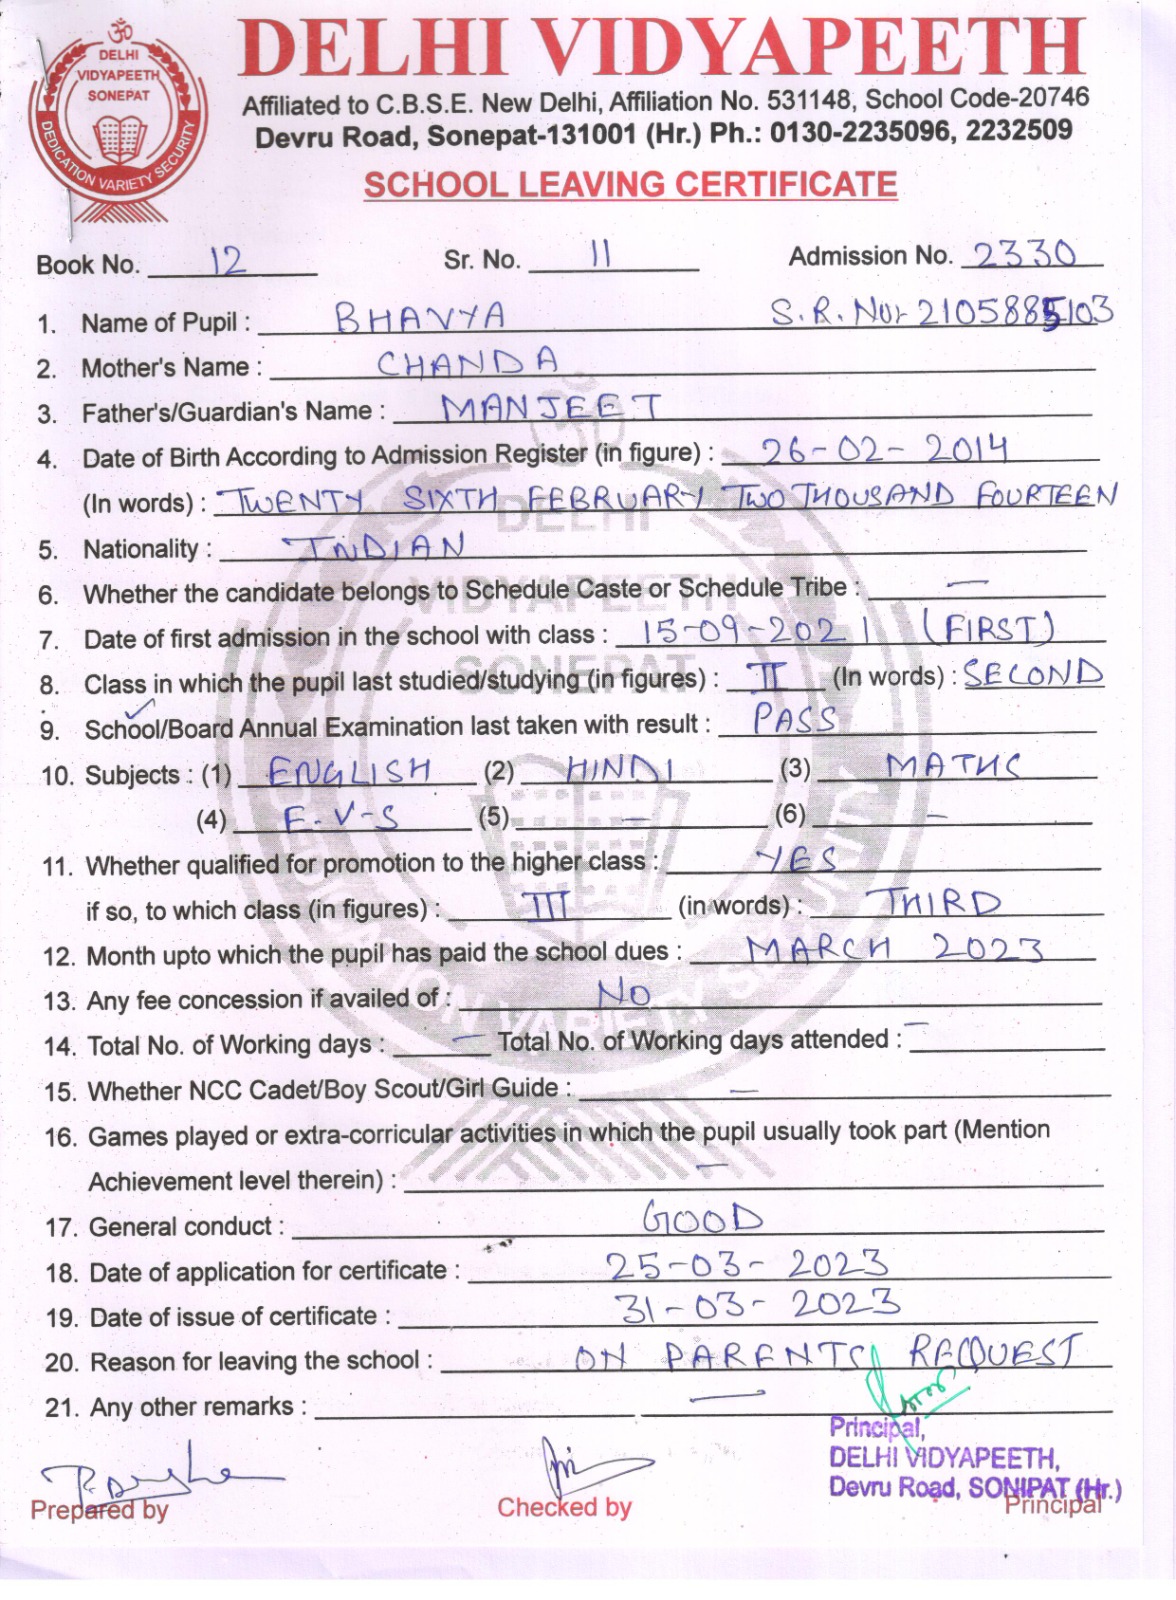 ॐ
DELHI
VIDYAPEETH
SONEPAT
DEDICATION VARIETY SECURITY
DELHI VIDYAPEETH
Affiliated to C.B.S.E. New Delhi, Affiliation No. 531148, School Code-20746
Devru Road, Sonepat-131001 (Hr.) Ph.: 0130-2235096, 2232509
SCHOOL LEAVING CERTIFICATE
Book No. 12 Sr. No. 11 Admission No. 2330
1. Name of Pupil : BHAVYA S.R.No:- 2105885103
2. Mother's Name : CHANDA
3. Father's/Guardian's Name : MANJEET
4. Date of Birth According to Admission Register (in figure) : 26-02-2014
(In words) : TWENTY SIXTH FEBRUARY TWO THOUSAND FOURTEEN
5. Nationality : INDIAN
6. Whether the candidate belongs to Schedule Caste or Schedule Tribe : —
7. Date of first admission in the school with class : 15-09-2021 (FIRST)
8. Class in which the pupil last studied/studying (in figures) : II (In words) : SECOND
9. School/Board Annual Examination last taken with result : PASS
10. Subjects : (1) ENGLISH (2) HINDI (3) MATHS
(4) E.V-S (5) — (6) —
11. Whether qualified for promotion to the higher class : YES
if so, to which class (in figures) : III (in words) : THIRD
12. Month upto which the pupil has paid the school dues : MARCH 2023
13. Any fee concession if availed of : NO
14. Total No. of Working days : — Total No. of Working days attended : —
15. Whether NCC Cadet/Boy Scout/Girl Guide : —
16. Games played or extra-corricular activities in which the pupil usually took part (Mention
Achievement level therein) : —
17. General conduct : GOOD
18. Date of application for certificate : 25-03-2023
19. Date of issue of certificate : 31-03-2023
20. Reason for leaving the school : ON PARENTS REQUEST
21. Any other remarks : —
Principal,
DELHI VIDYAPEETH,
Devru Road, SONIPAT (Hr.)
Prepared by Checked by Principal